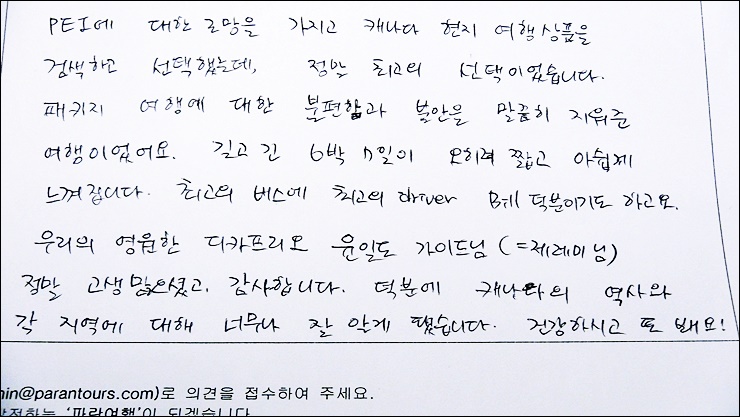 PEI에 대한 로망을 가지고 캐나다 현지 여행상품을
검색하고 선택했는데, 정말 최고의 선택이었습니다.
패키지 여행에 대한 불편함과 불안을 말끔히 지워준
여행이었어요. 길고 긴 6박 7일이 오히려 짧고 아쉽게
느껴집니다. 최고의 버스에 최고의 driver Bill 덕분이기도 하고요.
우리의 영원한 디카프리오 윤일도 가이드님 (=제레미님)
정말 고생 많으셨고, 감사합니다. 덕분에 캐나다의 역사와
각 지역에 대해 너무나 잘 알게 됐습니다. 건강하시고 또 봬요!
min@parantours.com)로 의견을 접수하여 주세요.
'파란여행'이 되겠습니다